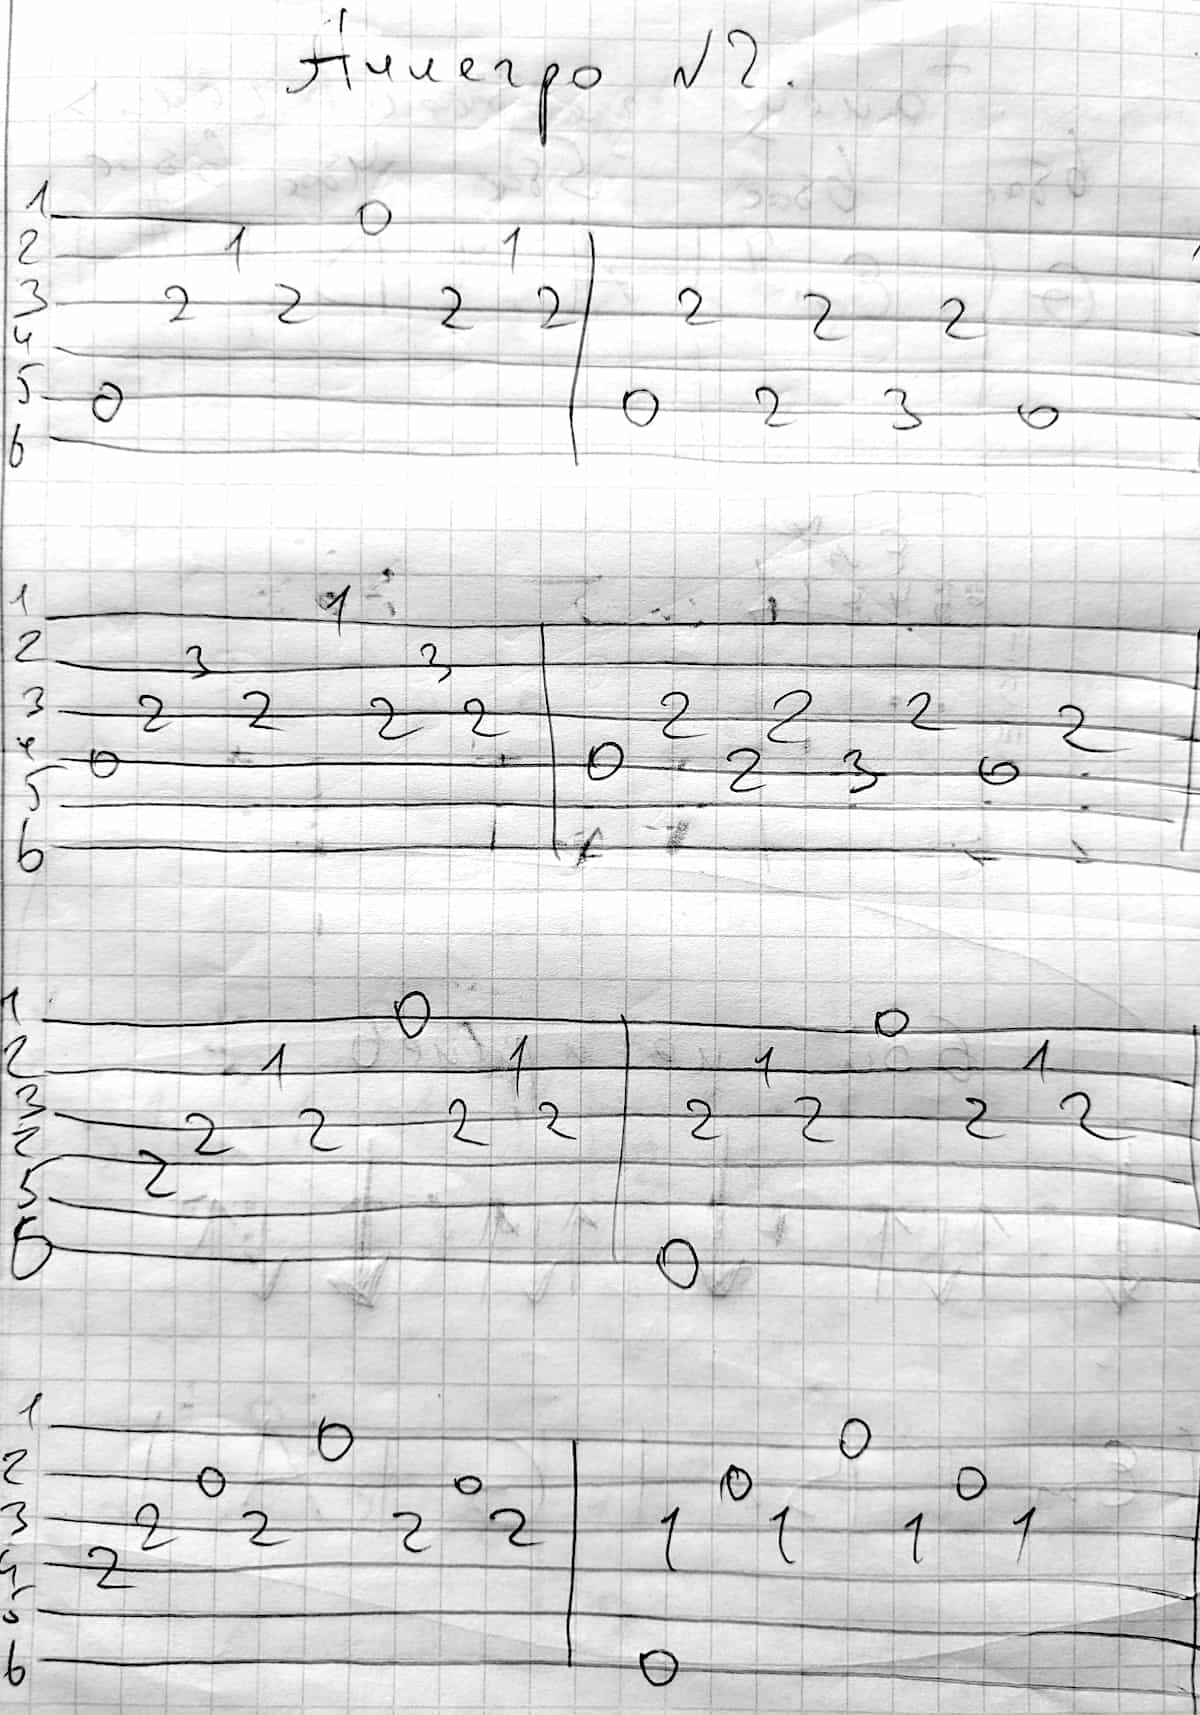 Аллегро №2.
1 0
2 1 1
3 2 2 2 2 2 2 2
4
5 0 0 2 3 0
6
1 1
2 3 3
3 2 2 2 2 2 2 2 2
4 0 0 2 3 0
5
6
1 0 0
2 1 1 1 1
3 2 2 2 2 2 2 2 2
2 2
5
6 0
1 0 0
2 0 0 0 0
3 2 2 2 2 1 1 1 1
4 2
5
6 0